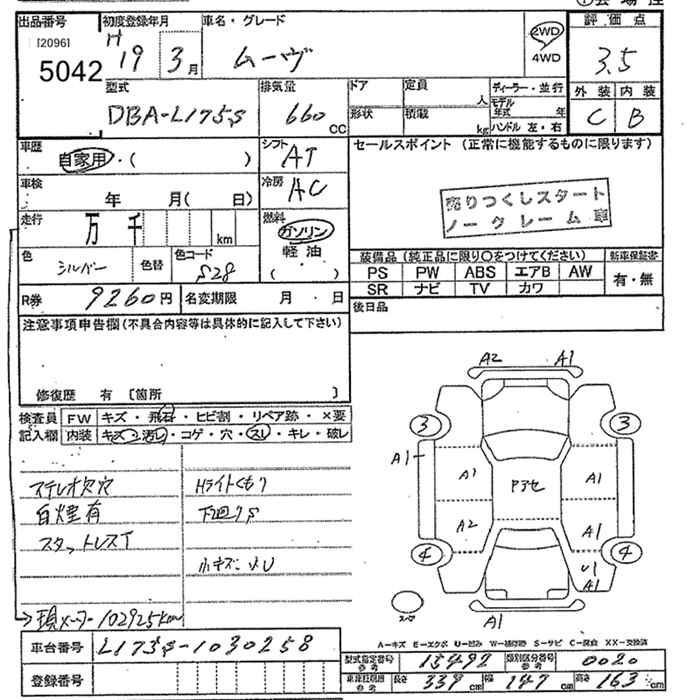 出品番号 初度登録年月 車名・グレード 2WD 4WD 評価点
[20961
5042
H 19 3月 ムーヴ 3.5
型式 排気量 ドア 定員 人 ディーラー・並行 外装 内装
DBA-L175S 660 CC 形状 積載 kg モデル年式 年 ハンドル 左・右 C B
車歴 自家用・( ) シフト AT セールスポイント (正常に機能するものに限ります)
車検 年 月( 日) 冷房 AC
売りつくしスタート
ノークレーム車
走行 万 千 km 燃料 ガソリン 軽油 ( )
色 シルバー 色替 色コード S28
装備品 (純正品に限り〇をつけてください) 新車保証書
PS PW ABS エアB AW 有・無
SR ナビ TV カワ
R券 9260円 名変期限 月・日 後日品
注意事項申告欄(不具合内容等は具体的に記入して下さい)
修復歴 有 〔箇所 〕
検査員記入欄 FW キズ・飛石・ヒビ割・リペア跡・×要
内装 キズ・汚レ・コゲ・穴・スレ・キレ・破レ
ステレオ欠穴 Hライトくもり
白煙有 下廻りS
スタッドレスT
小キズ・小U
現メーター102925km
A2 A1
3 3
A1 A1 A1
アラセ
A2 A1
4 4
U1
A1
A1
車台番号 L175S-1030258
登録番号
A-キズ E-エクボ U-凹み W-補修跡 S-サビ C-腐食 XX-交換済
型式指定番号 参考 15492 類別区分番号 参考 0020
車検証記載 参考 長さ 339cm 幅 147cm 高さ 163cm